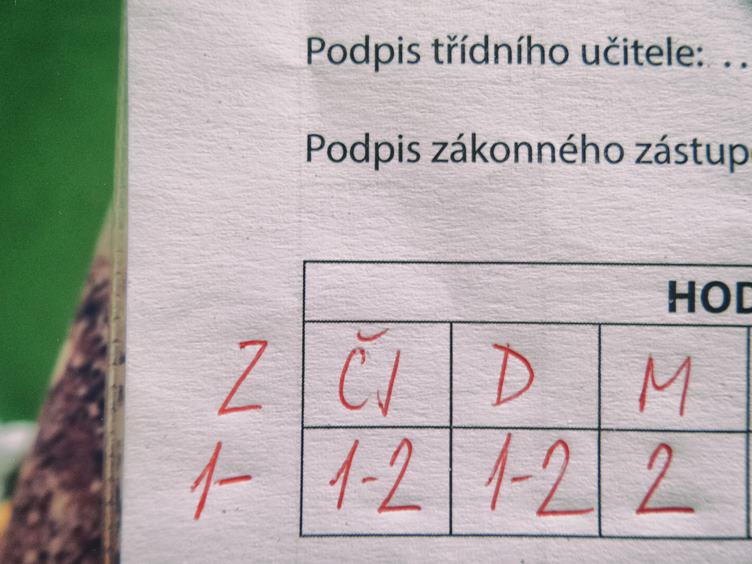 Podpis třídního učitele: ..
Podpis zákonného zástup
HOD
Z ČJ D M
1- 1-2 1-2 2